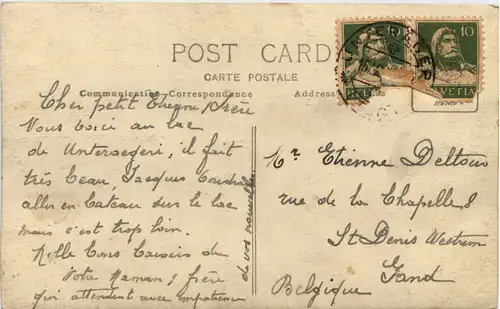 POST CARD
CARTE POSTALE
Communication Correspondance
Address
10
10
HELVETIA
HELVETIA
Cher petit Etienne, Frère
Vous voici au lac
de Unteraegeri, il fait
très beau, Jacques voudrait
aller en bateau sur le lac
mais c'est trop loin.
Mille bons baisers de
Votre Maman & frère
qui attendent avec impatience
de vos nouvelles
Mr Etienne Deltour
rue de la Chapelle 8
St Denis Westrem
Gand
Belgique